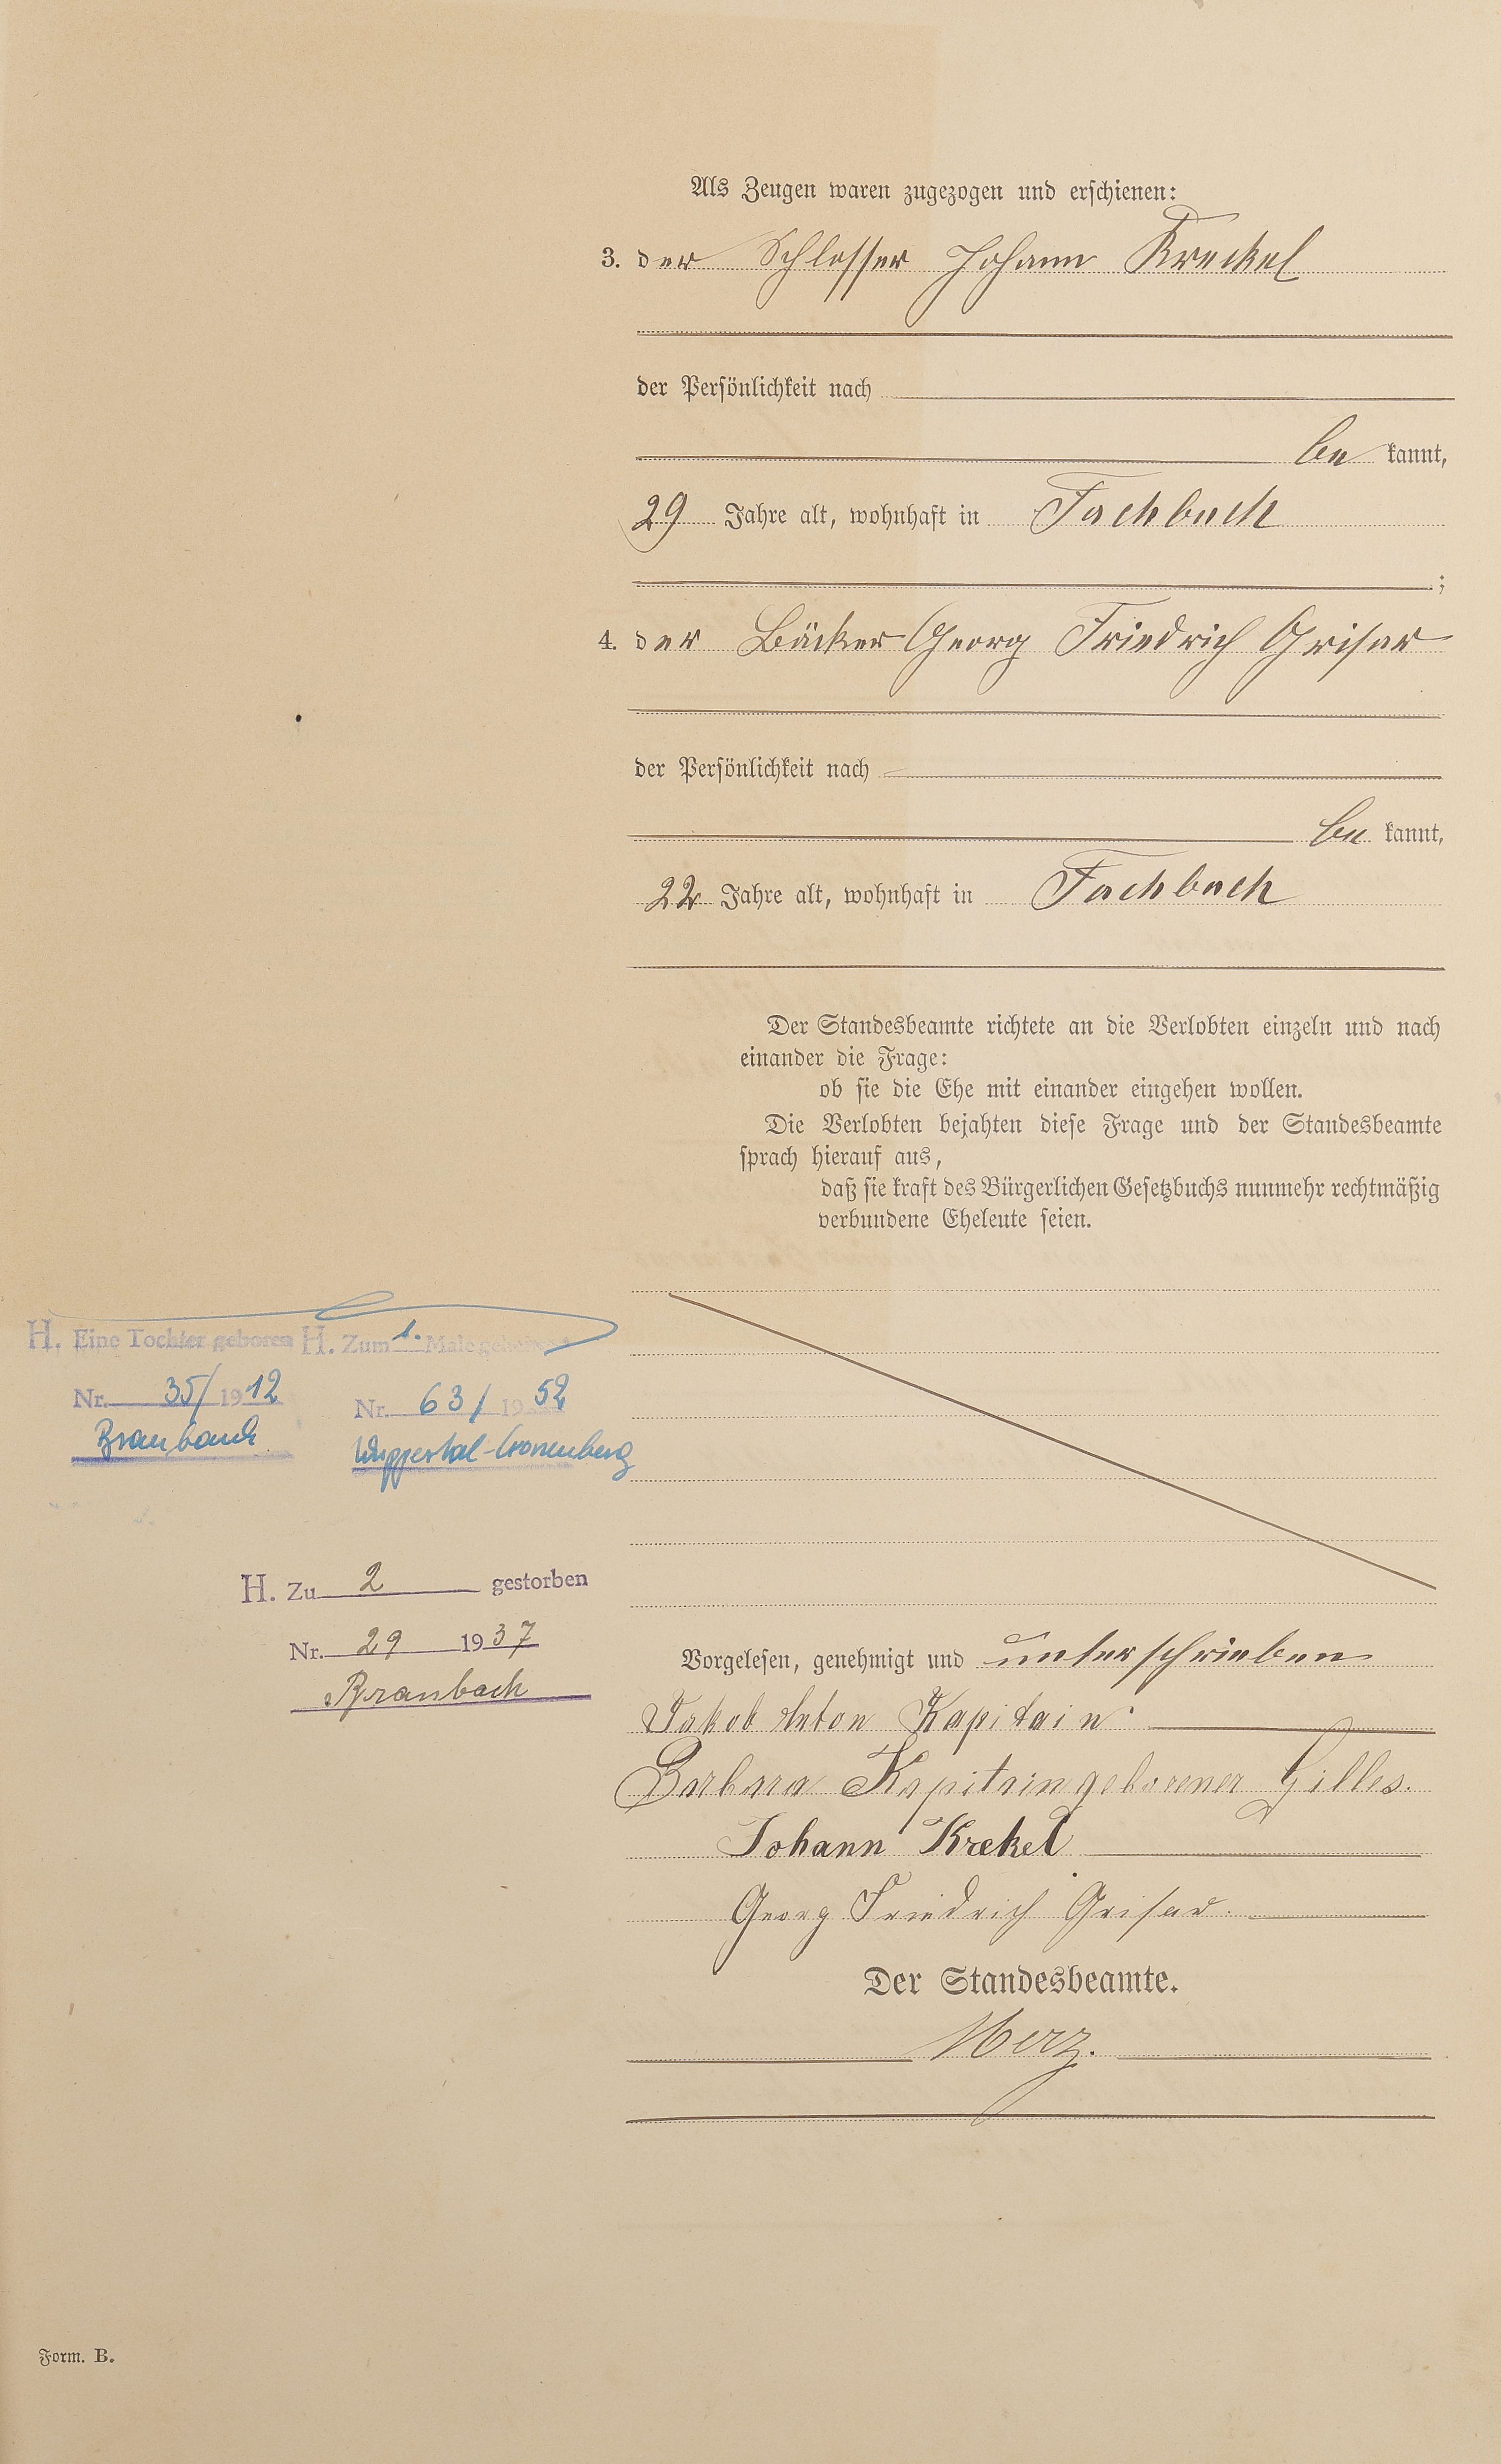 Als Zeugen waren zugezogen und erschienen:
3. der Schlosser Johann Kreckel
der Persönlichkeit nach
be kannt,
29 Jahre alt, wohnhaft in Fachbach
;
4. der Bäcker Georg Friedrich Grisar
der Persönlichkeit nach
be kannt,
22 Jahre alt, wohnhaft in Fachbach
Der Standesbeamte richtete an die Verlobten einzeln und nach
einander die Frage:
ob sie die Ehe mit einander eingehen wollen.
Die Verlobten bejahten diese Frage und der Standesbeamte
sprach hierauf aus,
daß sie kraft des Bürgerlichen Gesetzbuchs nunmehr rechtmäßig
verbundene Eheleute seien.
H. Eine Tochter geboren
Nr. 35/1912
Braubach
H. Zum 1. Male
Nr. 63/1952
Wuppertal-Cronenberg
H. Zu 2 gestorben
Nr. 29 1937
Braubach
Vorgelesen, genehmigt und unterschrieben
Jakob Anton Kapitain
Barbara Kapitain geborener Gilles.
Johann Krekel
Georg Friedrich Grisar.
Der Standesbeamte.
Merz.
Form. B.